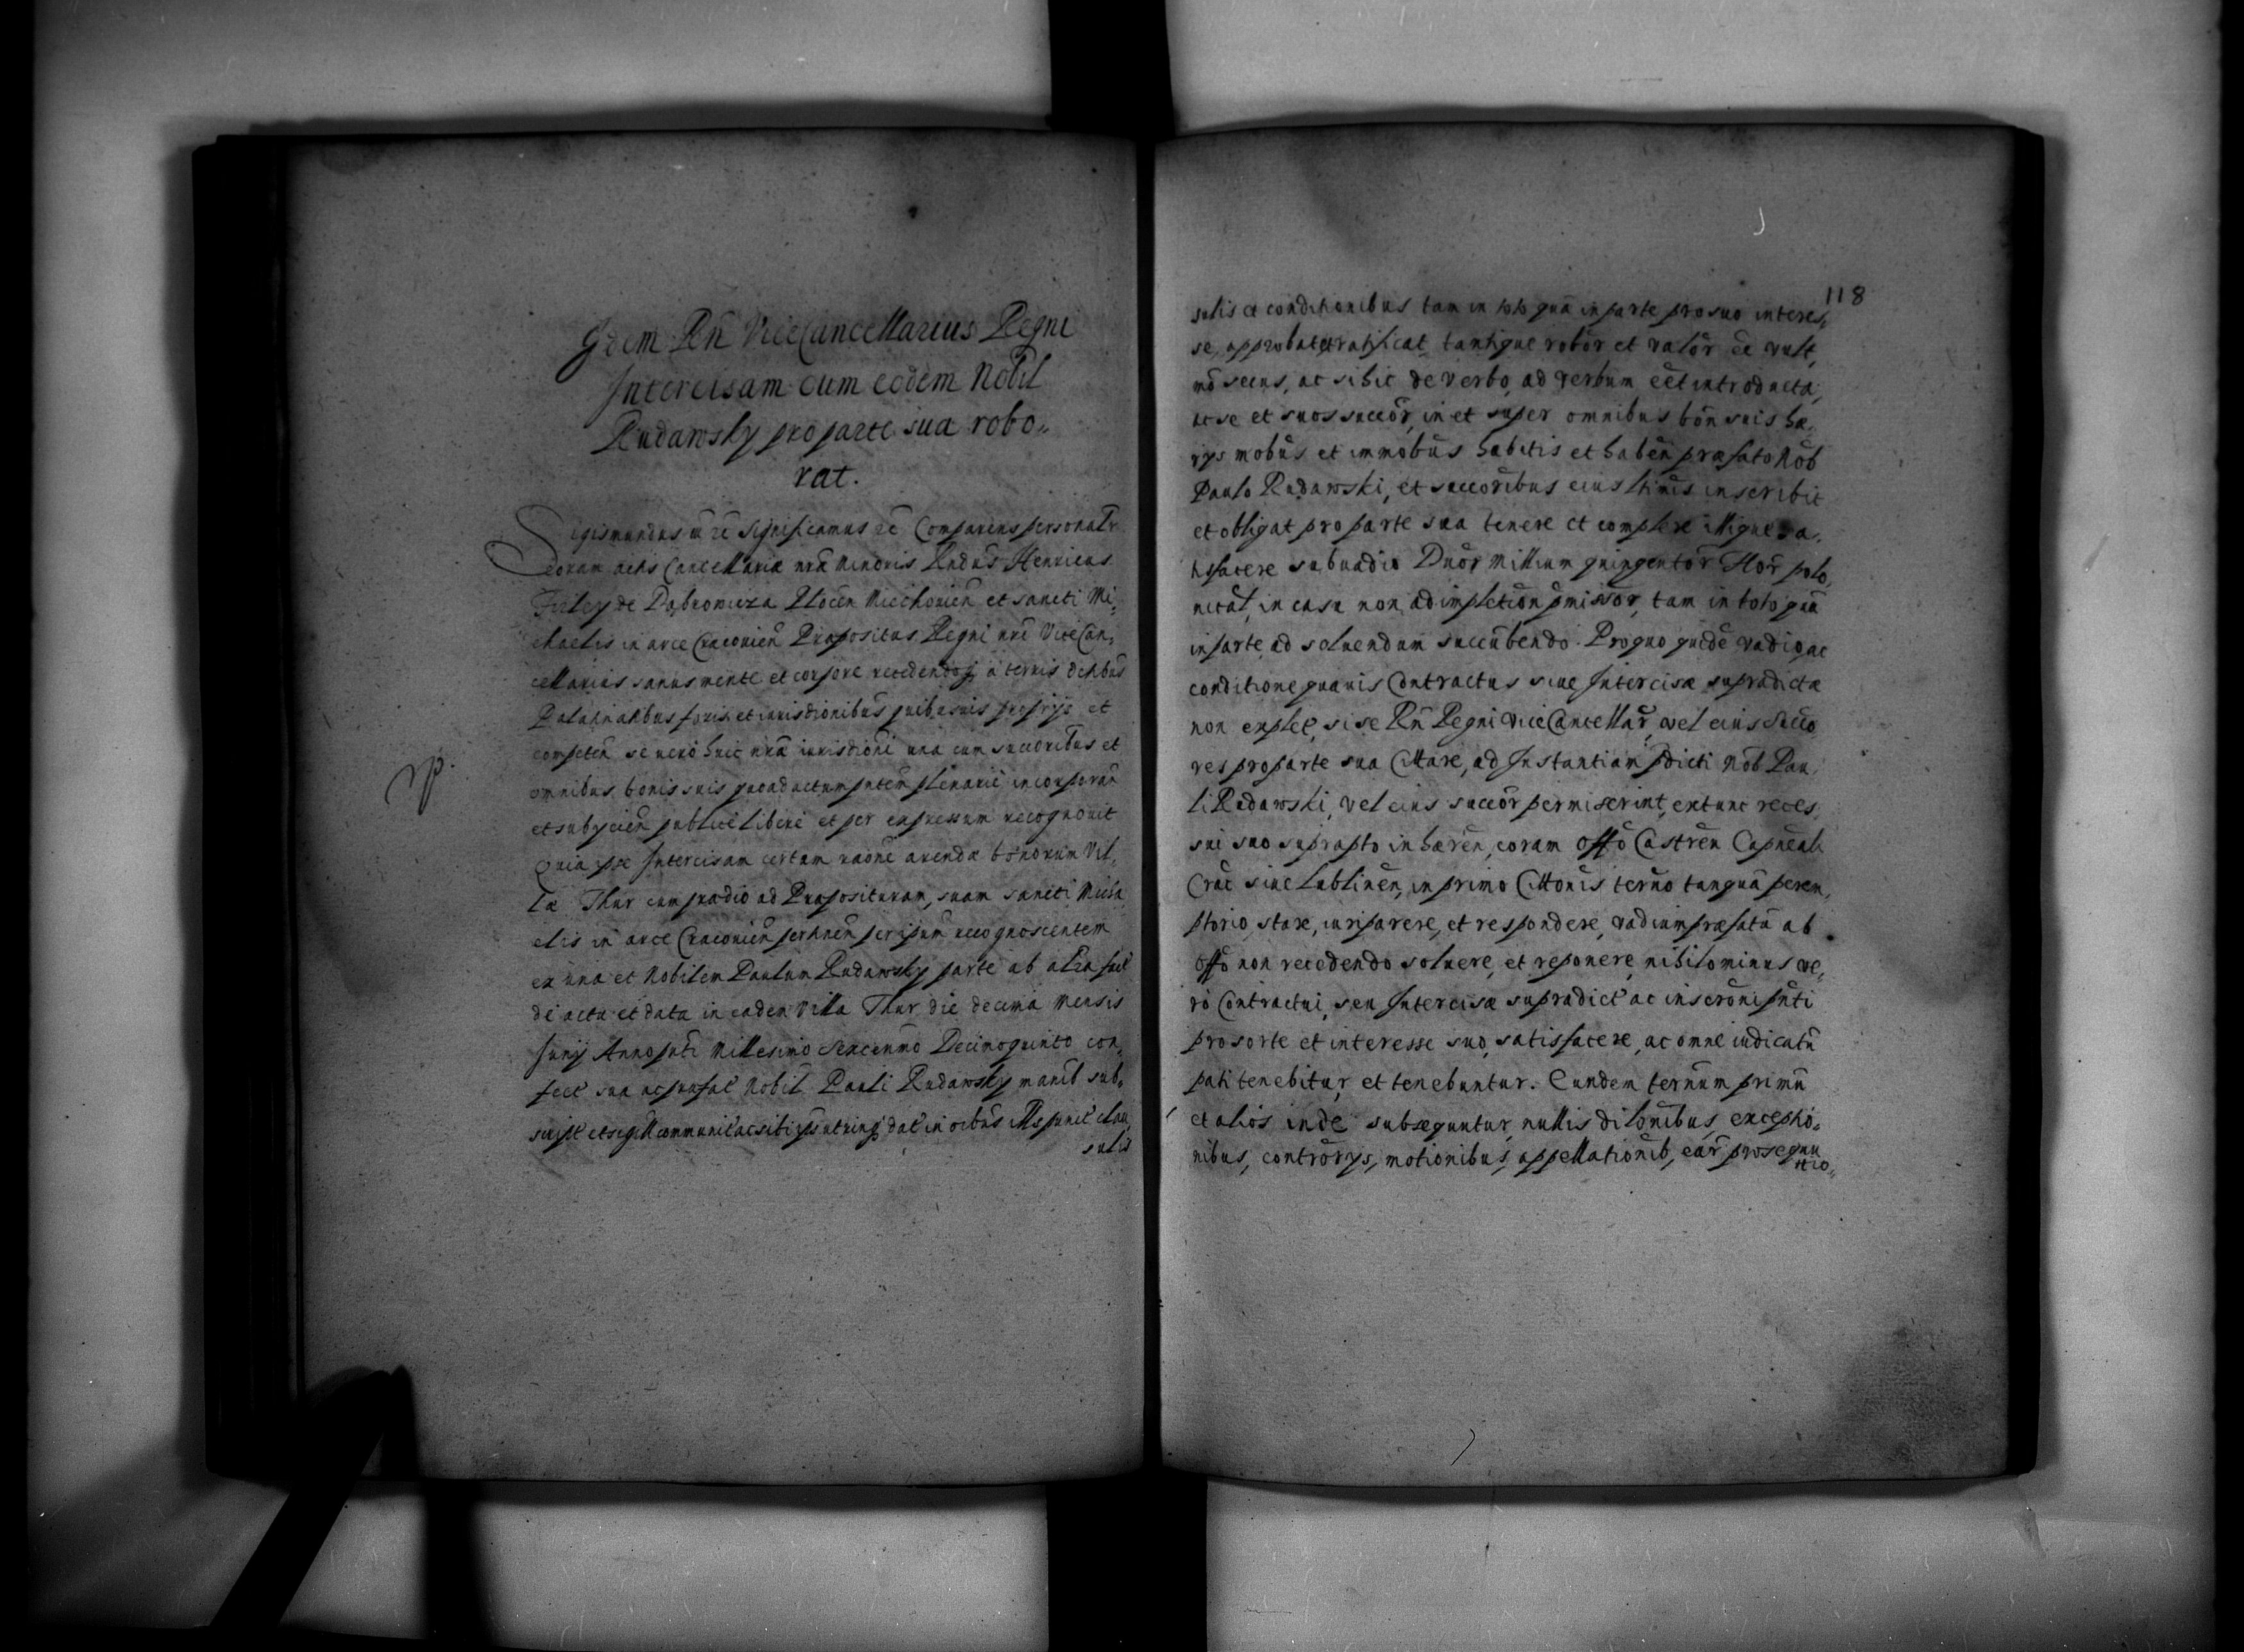 Idem Rñ ViceCancellarius Regni
Intercisam cum eodem Nobil
Rudawsky pro parte sua robo„
rat.
Sigismundus uñ rē significamus rē Comparens personalr
coram actis Cancellariæ nrã Minoris Rñdus Henricus
Firley de Dąbrowicza Plocen Miechouien et sancti Mi„
chaelis in arce Cracouien Præpositus Regni nri ViceCan„
cellarius sanus mente et corpore recedendoq a terris distibus
Palatinatibus foris et iurisdionibus quibusuis proprijs et
competen se uero huic nrã iurisdioni una cum succoribus et
omnibus bonis suis quoad actum pñtem plenarie incorporañ
et subijcien publice libere et per expressum recognouit
Quia ipse Intercisam certam raone arendæ bonorum Vil„
læ Thur cum prædio ad Præposituram suam sancti Micha
elis in arce Cracouien pertinen per ipsum recognoscentem
ex una et Nobilem Paulum Rudawsky parte ab alia
de actu et data in eadem Villa Thur die decima Mensis
Junij Anno pñti Millesimo Sexcenmo Decimoquinto con„
fect sua ac præfat Nobil Pauli Rudawsky manib sub„
script et sigill communit ac sibi ipsis utrinq dat in oibus illis punct clau„
sulis
rp.
118
sulis et conditionibus tam in toto quã in parte pro suo interes„
se, approbat et ratificat tantique robor et valor eē vult,
nõ secus, ac si hic de verbo ad verbum eēt introducta,
ac se et suos succor, in et super omnibus bon suis hæ„
rijs mobus et immobus habitis et haben præfato Nob
Paulo Rudawski, et succoribus eius ltimis inscribit
et obligat pro parte sua tenere et complere illique sa„
tisfacere sub uadio Duor Millium quingentor Flor polo„
nical, in casu non adimpletion pmissor, tam in toto quã
in parte ad soluendum succubendo. Pro quo quidē vadio ac
conditione quauis Contractus siue Intercisæ supradictæ
non explet, si se Rñ Regni ViceCancellar, vel eius Succo
res pro parte sua Citare, ad Instantiam pdicti Nob Pau„
li Rudawski, vel eius succor permiserint, extunc reces„
sui suo suprapto inhæren, coram Offo Castren Capneali
Crac siue Lublinen, in primo Citionis terno tanquã peren„
ptorio, stare, iuri parere, et respondere, vadium præfatũ ab
Offo non recedendo soluere, et reponere, nihilominus ve„
ro Contractui, seu Intercisæ supradict ac inscroni pñti
pro sorte et interesse suo, satisfacere, ac omne iudicatũ
pati tenebitur, et tenebuntur. Eundem ternum primũ
et alios inde subsequuntur, nullis dilonibus, exceptio„
nibus, controrijs, motionibus, appellationib, ear prosequu
tio„